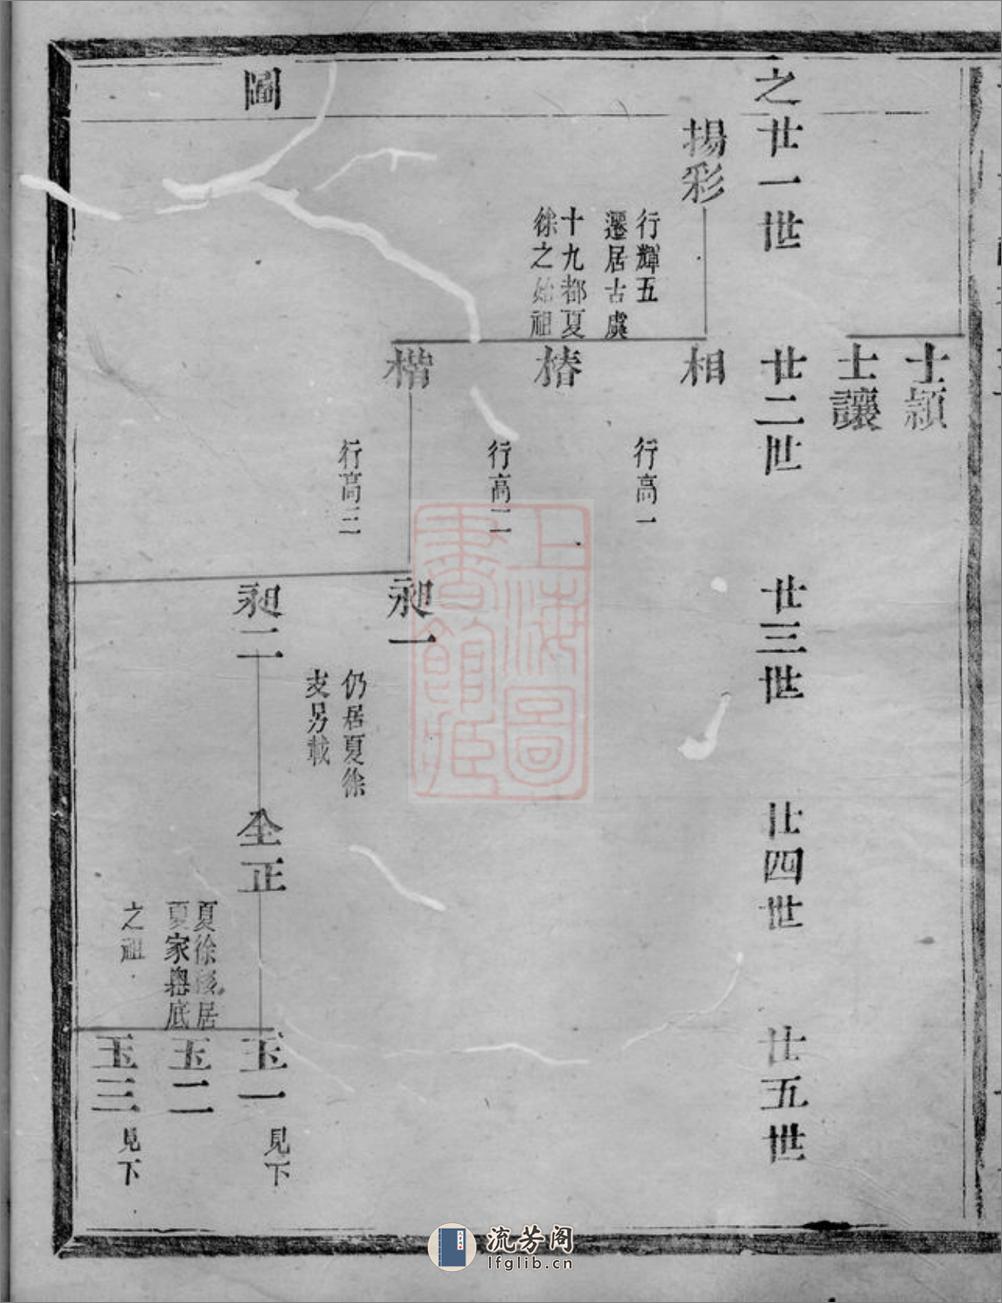 士穎
士讓
之
廿一世
廿二世
廿三世
廿四世
廿五世
揚彩
行輝五
遷居古虞
十九都夏
徐之始祖
相
行高一
椿
行高二
楷
行高三
昶一
仍居夏徐
支另載
圖
昶二
全正
夏徐後居
夏家嶴底
之祖
玉一
見下
玉二
玉三
見下
上海圖
書館藏
流芳阁
lfglib.cn